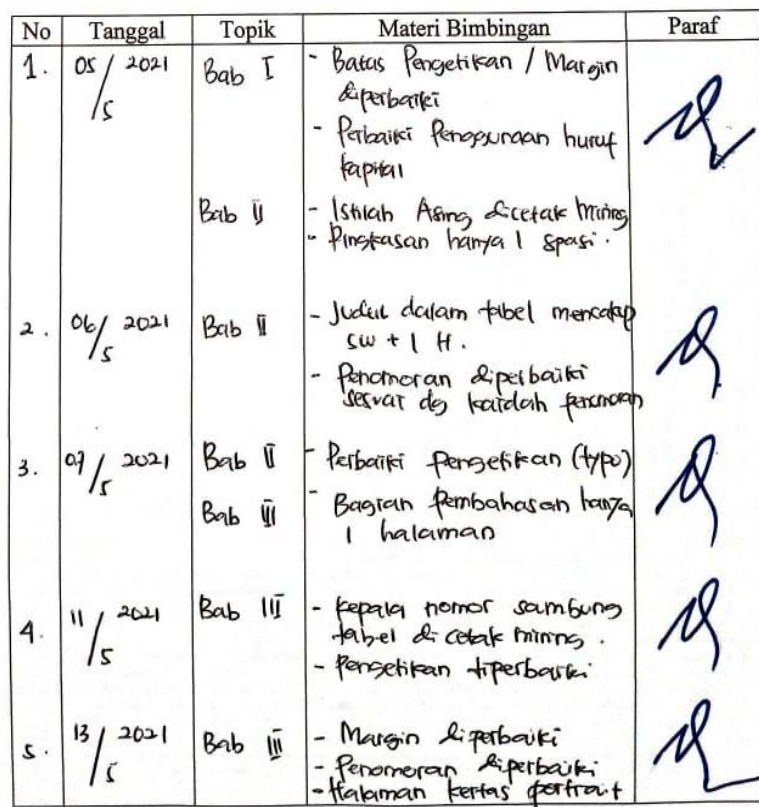 No Tanggal Topik Materi Bimbingan Paraf
1. 05/5 2021 Bab I - Batas Pengetikan / Margin
diperbaiki
- Perbaiki Penggunaan huruf
kapital
Bab II - Istilah Asing dicetak miring
- Pingkasan hanya 1 spasi.
2. 06/5 2021 Bab II - Judul dalam tabel mencakup
5W + 1 H.
- Penomoran diperbaiki
sesuai dg kaidah penomoran
3. 07/5 2021 Bab II - Perbaiki pengetikan (typo)
Bab III - Bagian pembahasan hanya
1 halaman
4. 11/5 2021 Bab III - kepala nomor sambung
tabel di cetak miring.
- Pengetikan diperbaiki
5. 13/5 2021 Bab III - Margin diperbaiki
- Penomoran diperbaiki
- Halaman kertas portrait